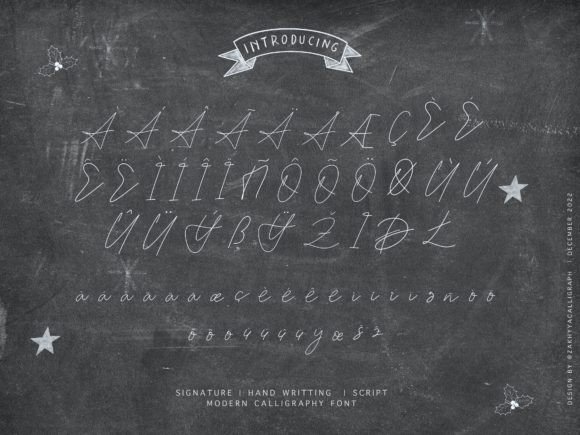 INTRODUCING
À Á Â Ã Ä Å Æ Ç È É
Ê Ë Ì Í Î Ï Ñ Ô Õ Ö Ø Ù Ú
Û Ü Ý ß Ÿ Ž Ł
à á â ã ä å æ ç è é ê ë ì í î ï ñ ò ó
ô õ ö ù ú û ü ý œ š ž
SIGNATURE | HAND WRITTING | SCRIPT
MODERN CALLIGRAPHY FONT
DESIGN BY @ZAKHYYACALLIGRAPH | DECEMBER 2022